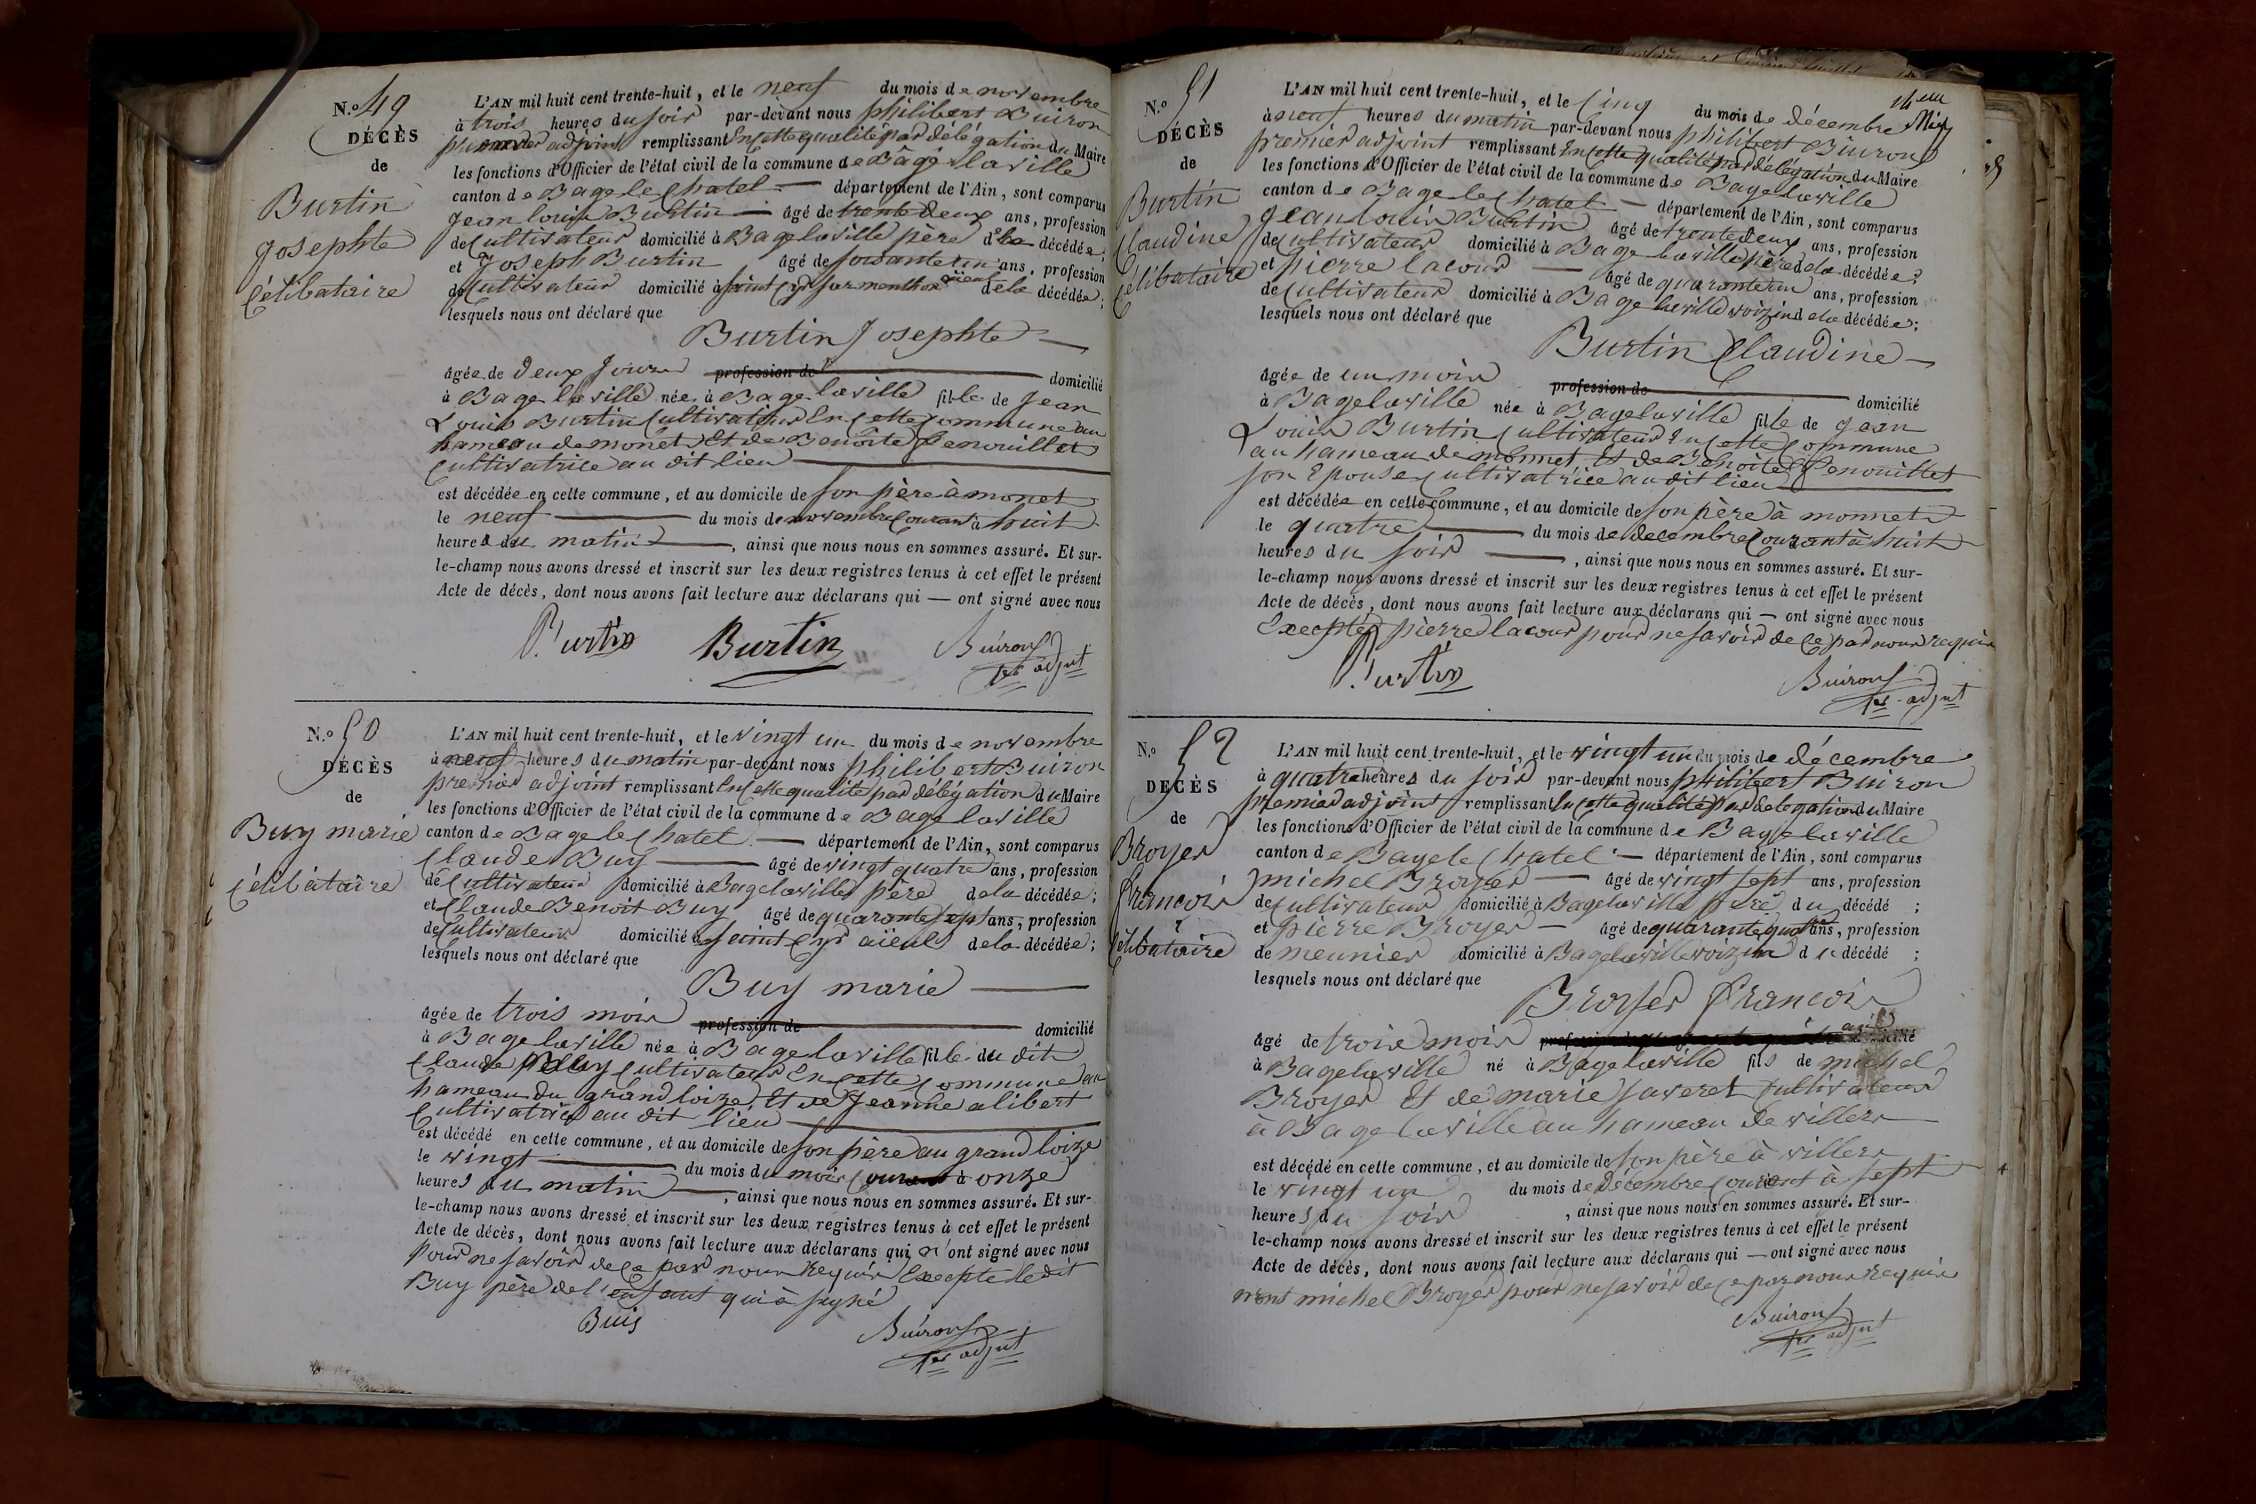 N.º 49
DÉCÈS
de
Burtin
Josephte
Célibataire
L'AN mil huit cent trente-huit, et le neuf du mois de novembre
à trois heures du soir par-devant nous philibert Buiron
premier adjoint remplissant En cette qualité par délégation du Maire
les fonctions d'Officier de l'état civil de la commune de Bâgé laville
canton de Bage le Chatel — département de l'Ain, sont comparus
Jean louis Burtin — âgé de trente deux ans, profession
de Cultivateur domicilié à Bage laville père de la décédée;
et Joseph Burtin âgé de soixante un ans, profession
de Cultivateur domicilié à saint Cyr sur menthon aïeul de la décédée;
lesquels nous ont déclaré que
Burtin Josephte —
âgée de deux jours profession de domicilié
à Bage laville née à Bage laville fille de Jean
Louis Burtin Cultivateur En Cette Commune au
hameau de monet Et de Benoite Penouillet
Cultivatrice au dit lieu
est décédée en cette commune, et au domicile de son père à monet
le neuf du mois de novembre Courant à huit
heures du matin —, ainsi que nous nous en sommes assuré. Et sur-
le-champ nous avons dressé et inscrit sur les deux registres tenus à cet effet le présent
Acte de décès, dont nous avons fait lecture aux déclarans qui — ont signé avec nous
Burtin Burtin Buiron
1er adjnt
N.º 50
DÉCÈS
de
Buy marie
Célibataire
L'AN mil huit cent trente-huit, et le vingt un du mois de novembre
à neuf heures du matin par-devant nous philibert Buiron
premier adjoint remplissant En Cette qualité par délégation du Maire
les fonctions d'Officier de l'état civil de la commune de Bage laville
canton de Bage le Chatel — département de l'Ain, sont comparus
Claude Buy — âgé de vingt quatre ans, profession
de Cultivateur domicilié à Bage laville père de la décédée;
et Claude Benoit Buy âgé de quarante sept ans, profession
de Cultivateur domicilié à saint Cyr aïeul de la décédée;
lesquels nous ont déclaré que
Buy marie —
âgée de trois mois profession de domicilié
à Bage laville née à Bage laville fille du dit
Claude Buy Cultivateur En Cette Commune au
hameau du grand loize Et de Jeanne alibert
Cultivatrice au dit lieu
est décédé en cette commune, et au domicile de son père au grand loize
le vingt du mois du mois Courant à onze
heures du matin —, ainsi que nous nous en sommes assuré. Et sur-
le-champ nous avons dressé et inscrit sur les deux registres tenus à cet effet le présent
Acte de décès, dont nous avons fait lecture aux déclarans qui n'ont signé avec nous
pour ne savoir de Ce par nous Requis Excepté le dit
Buy père de l'enfant qui à signé
Buis Buiron
1er adjnt
N.º 51
DÉCÈS
de
Burtin
Claudine
Célibataire
L'AN mil huit cent trente-huit, et le Cinq du mois de décembre
à neuf heures du matin par-devant nous philibert Buiron
premier adjoint remplissant En cette qualité par délégation du Maire
les fonctions d'Officier de l'état civil de la commune de Bage laville
canton de Bage le Chatel — département de l'Ain, sont comparus
Jean louis Burtin âgé de trente deux ans, profession
de Cultivateur domicilié à Bage laville père de la décédée;
et pierre lacour — âgé de quarante un ans, profession
de Cultivateur domicilié à Bage laville voizin de la décédée;
lesquels nous ont déclaré que
Burtin Claudine —
âgée de un mois profession de domicilié
à Bage laville née à Bage laville fille de Jean
Louis Burtin Cultivateur En Cette Commune
au hameau de monnet Et de Benoite Penouillet
son Epouse Cultivatrice au dit lieu
est décédée en cette commune, et au domicile de son père à monnet
le quatre du mois de decembre Courant à huit
heures du soir —, ainsi que nous nous en sommes assuré. Et sur-
le-champ nous avons dressé et inscrit sur les deux registres tenus à cet effet le présent
Acte de décès, dont nous avons fait lecture aux déclarans qui — ont signé avec nous
Excepté pierre lacour pour ne savoir de Ce par nous requis
Burtin Buiron
1er adjnt
N.º 52
DÉCÈS
de
Broyer
François
Célibataire
L'AN mil huit cent trente-huit, et le vingt un du mois de décembre
à quatre heures du soir par-devant nous philibert Buiron
premier adjoint remplissant En cette qualité par délégation du Maire
les fonctions d'Officier de l'état civil de la commune de Bage laville
canton de Bage le Chatel — département de l'Ain, sont comparus
michel Broyer — âgé de vingt sept ans, profession
de Cultivateur domicilié à Bage laville père du décédé ;
et pierre Broyer — âgé de quarante quatre ans, profession
de meunier domicilié à Bage laville voizin du décédé ;
lesquels nous ont déclaré que
Broyer François
âgé de trois mois
à Bage laville né à Bage laville fils de michel
Broyer Et de marie saveret Cultivateur
à Bage laville au hameau de villers
est décédé en cette commune, et au domicile de son père à villers
le vingt un du mois de décembre Courant à sept
heures du soir , ainsi que nous nous en sommes assuré. Et sur-
le-champ nous avons dressé et inscrit sur les deux registres tenus à cet effet le présent
Acte de décès, dont nous avons fait lecture aux déclarans qui — ont signé avec nous
michel Broyer pour ne savoir de Ce par nous requis
Buiron
1er adjnt